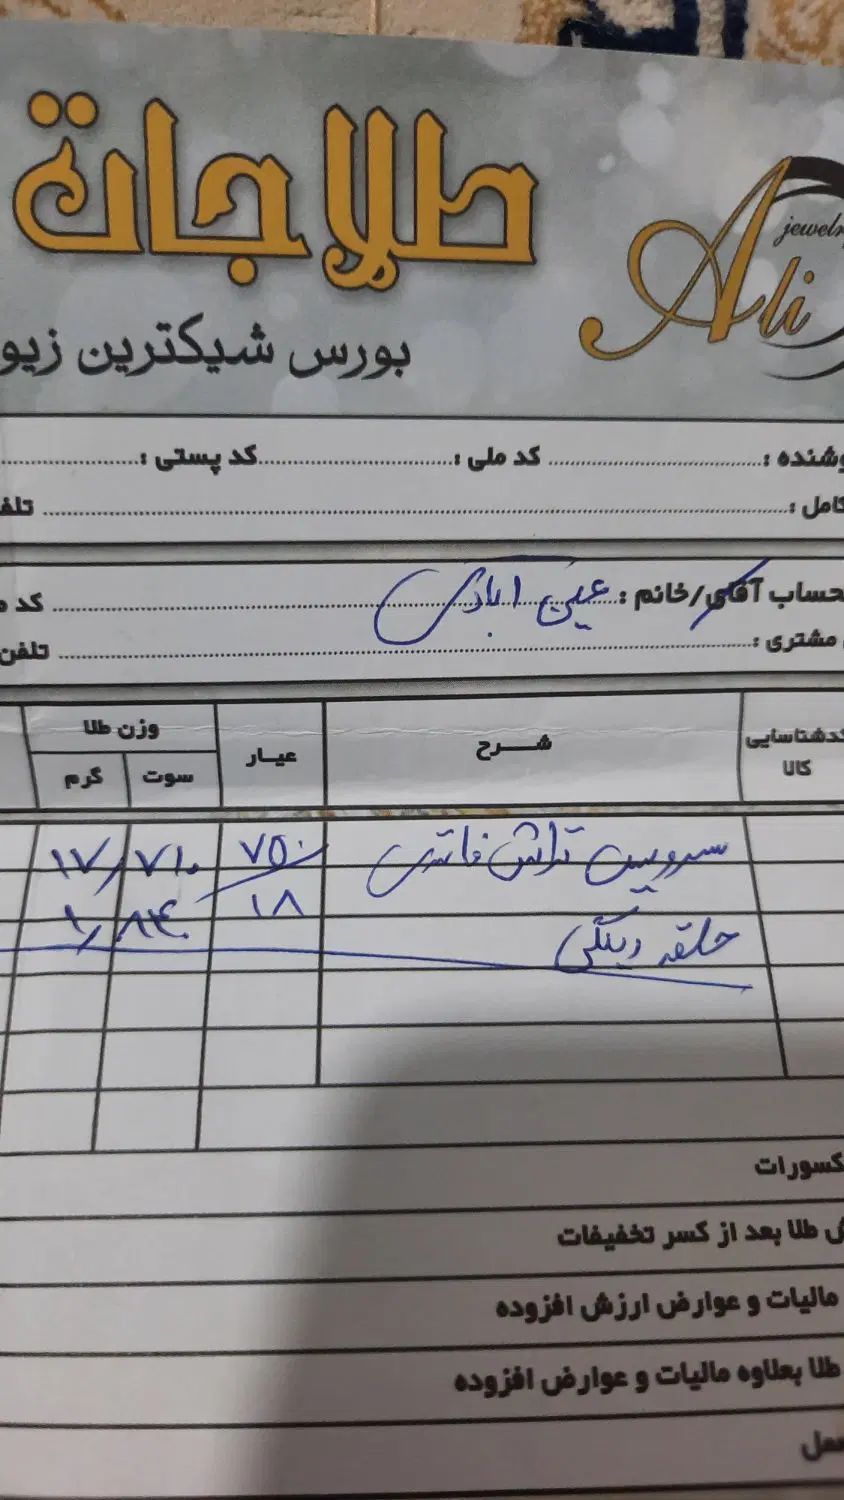 طلاجات
Ali
jewelry
بورس شیکترین زیو
وشنده : کد ملی : کد پستی :
کامل : تلف
حساب آقای/خانم : عین ابادی کد م
مشتری : تلفن
کدشناسایی کالا شـــرح عیـار وزن طلا
سوت گرم
سرویس تراش فانتزی ۷۵۰ ۷۱۰ ۱۷
حلقه رینگی ۱۸ ۸۴۰ ۱
کسورات
ش طلا بعد از کسر تخفیفات
مالیات و عوارض ارزش افزوده
طلا بعلاوه مالیات و عوارض افزوده